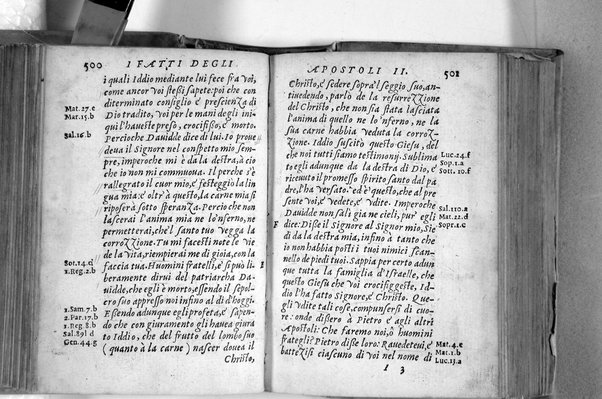 500 I FATTI DEGLI
i quali Iddio mediante lui fece fra voi,
come ancor voi stessi sapete: poi che con
Mat. 27. e
diterminato consiglio e prescienza di
Mar. 15. b
Dio tradito, voi per le mani degli ini-
qui l'haueste preso, crocifisso, e morto.
Sal. 16. b
Percioche Dauidde dice di lui. Io proue
deua il Signore nel cospetto mio sem-
pre, imperoche mi è da la destra, à cio
che io non mi commuoua. Il perche s'è
rallegrato il cuor mio, e festeggiò la lin
gua mia: e oltr'à questo, la carne mia si
riposerà sotto speranza. Perche non
lascerai l'anima mia ne lo'nferno, ne
permetterai, che'l santo tuo vegga la
corrozzione. Tu mi facesti note le vie
de la vita, riempierai me di gioia, con la
Sot. 14. d
faccia tua. Huomini fratelli, è si può li-
1. Reg. 2. b
beramente dirui del patriarcha Da-
uidde, che egli è morto, essendo il sepol-
cro suo appresso noi infino al dì d'hoggi.
1. Sam. 7. b
Essendo adunque egli profeta, e sapen-
2. Par. 17. b
1. Reg. 8. b
do che con giuramento gli hauea giura
Sal. 89. d
to Iddio, che del frutto del lombo suo
Gen. 44. g
(quanto à la carne) nascer douea il
Christo,
APOSTOLI II. 501
Christo, e sedere sopra'l seggio suo, an-
tiuedendo, parlò de la resurrezzione
del Christo, che non sia stata lasciata
l'anima di quello ne lo'nferno, ne la
sua carne habbia veduta la corroz-
zione. Iddio suscitò questo Giesu, del
che noi tutti siamo testimonij. Sublima
Luc. 24. f
to egli adunque da la destra di Dio, e
Sop. 1. a
riceuuto il promesso spirito santo dal pa
Sott. 10. f
dre, l'ha versato. ed è questo, che al pre
sente voi, e vedete, e vdite. Imperoche
Sal. 110. a
Dauidde non salì gia ne cieli, pur'egli
Mat. 22. d
F dice: Disse il Signore al Signor mio, Sie
Sopr. 1. c
di da la destra mia, infino à tanto che
io non habbia posti i tuoi nimici scan-
nello de piedi tuoi. Sappia per certo adun
que tutta la famiglia d'Israelle, che
questo Giesu che voi crocifiggeste, Id-
dio l'ha fatto Signore, e Christo. Que-
gli vdite tali cose, compunsersi di cuo-
re: onde dissero à Pietro e agli altri
Apostoli: Che faremo noi, ò huomini
frategli? Pietro disse loro: Rauedeteui, e
Mat. 4. e
battezisi ciascuno di voi nel nome di
Mat. 1. b
Luc. 13. a
I 3